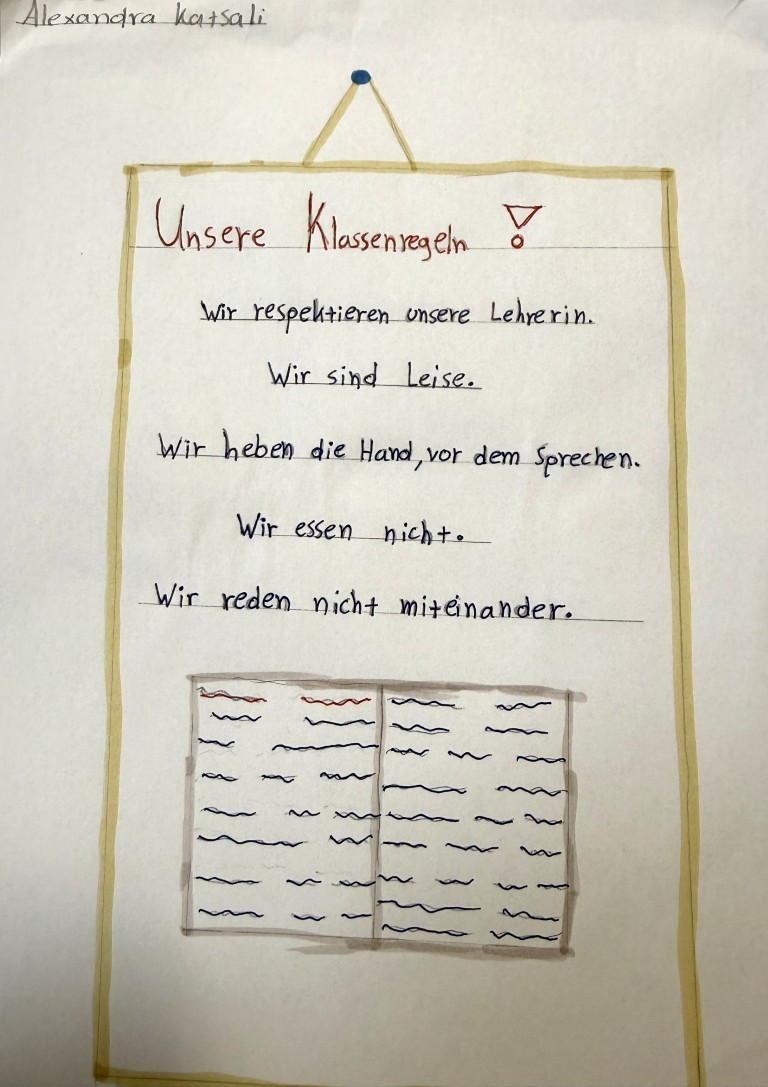 Alexandra Katsali
Unsere Klassenregeln !
Wir respektieren unsere Lehrerin.
Wir sind Leise.
Wir heben die Hand, vor dem Sprechen.
Wir essen nicht.
Wir reden nicht miteinander.